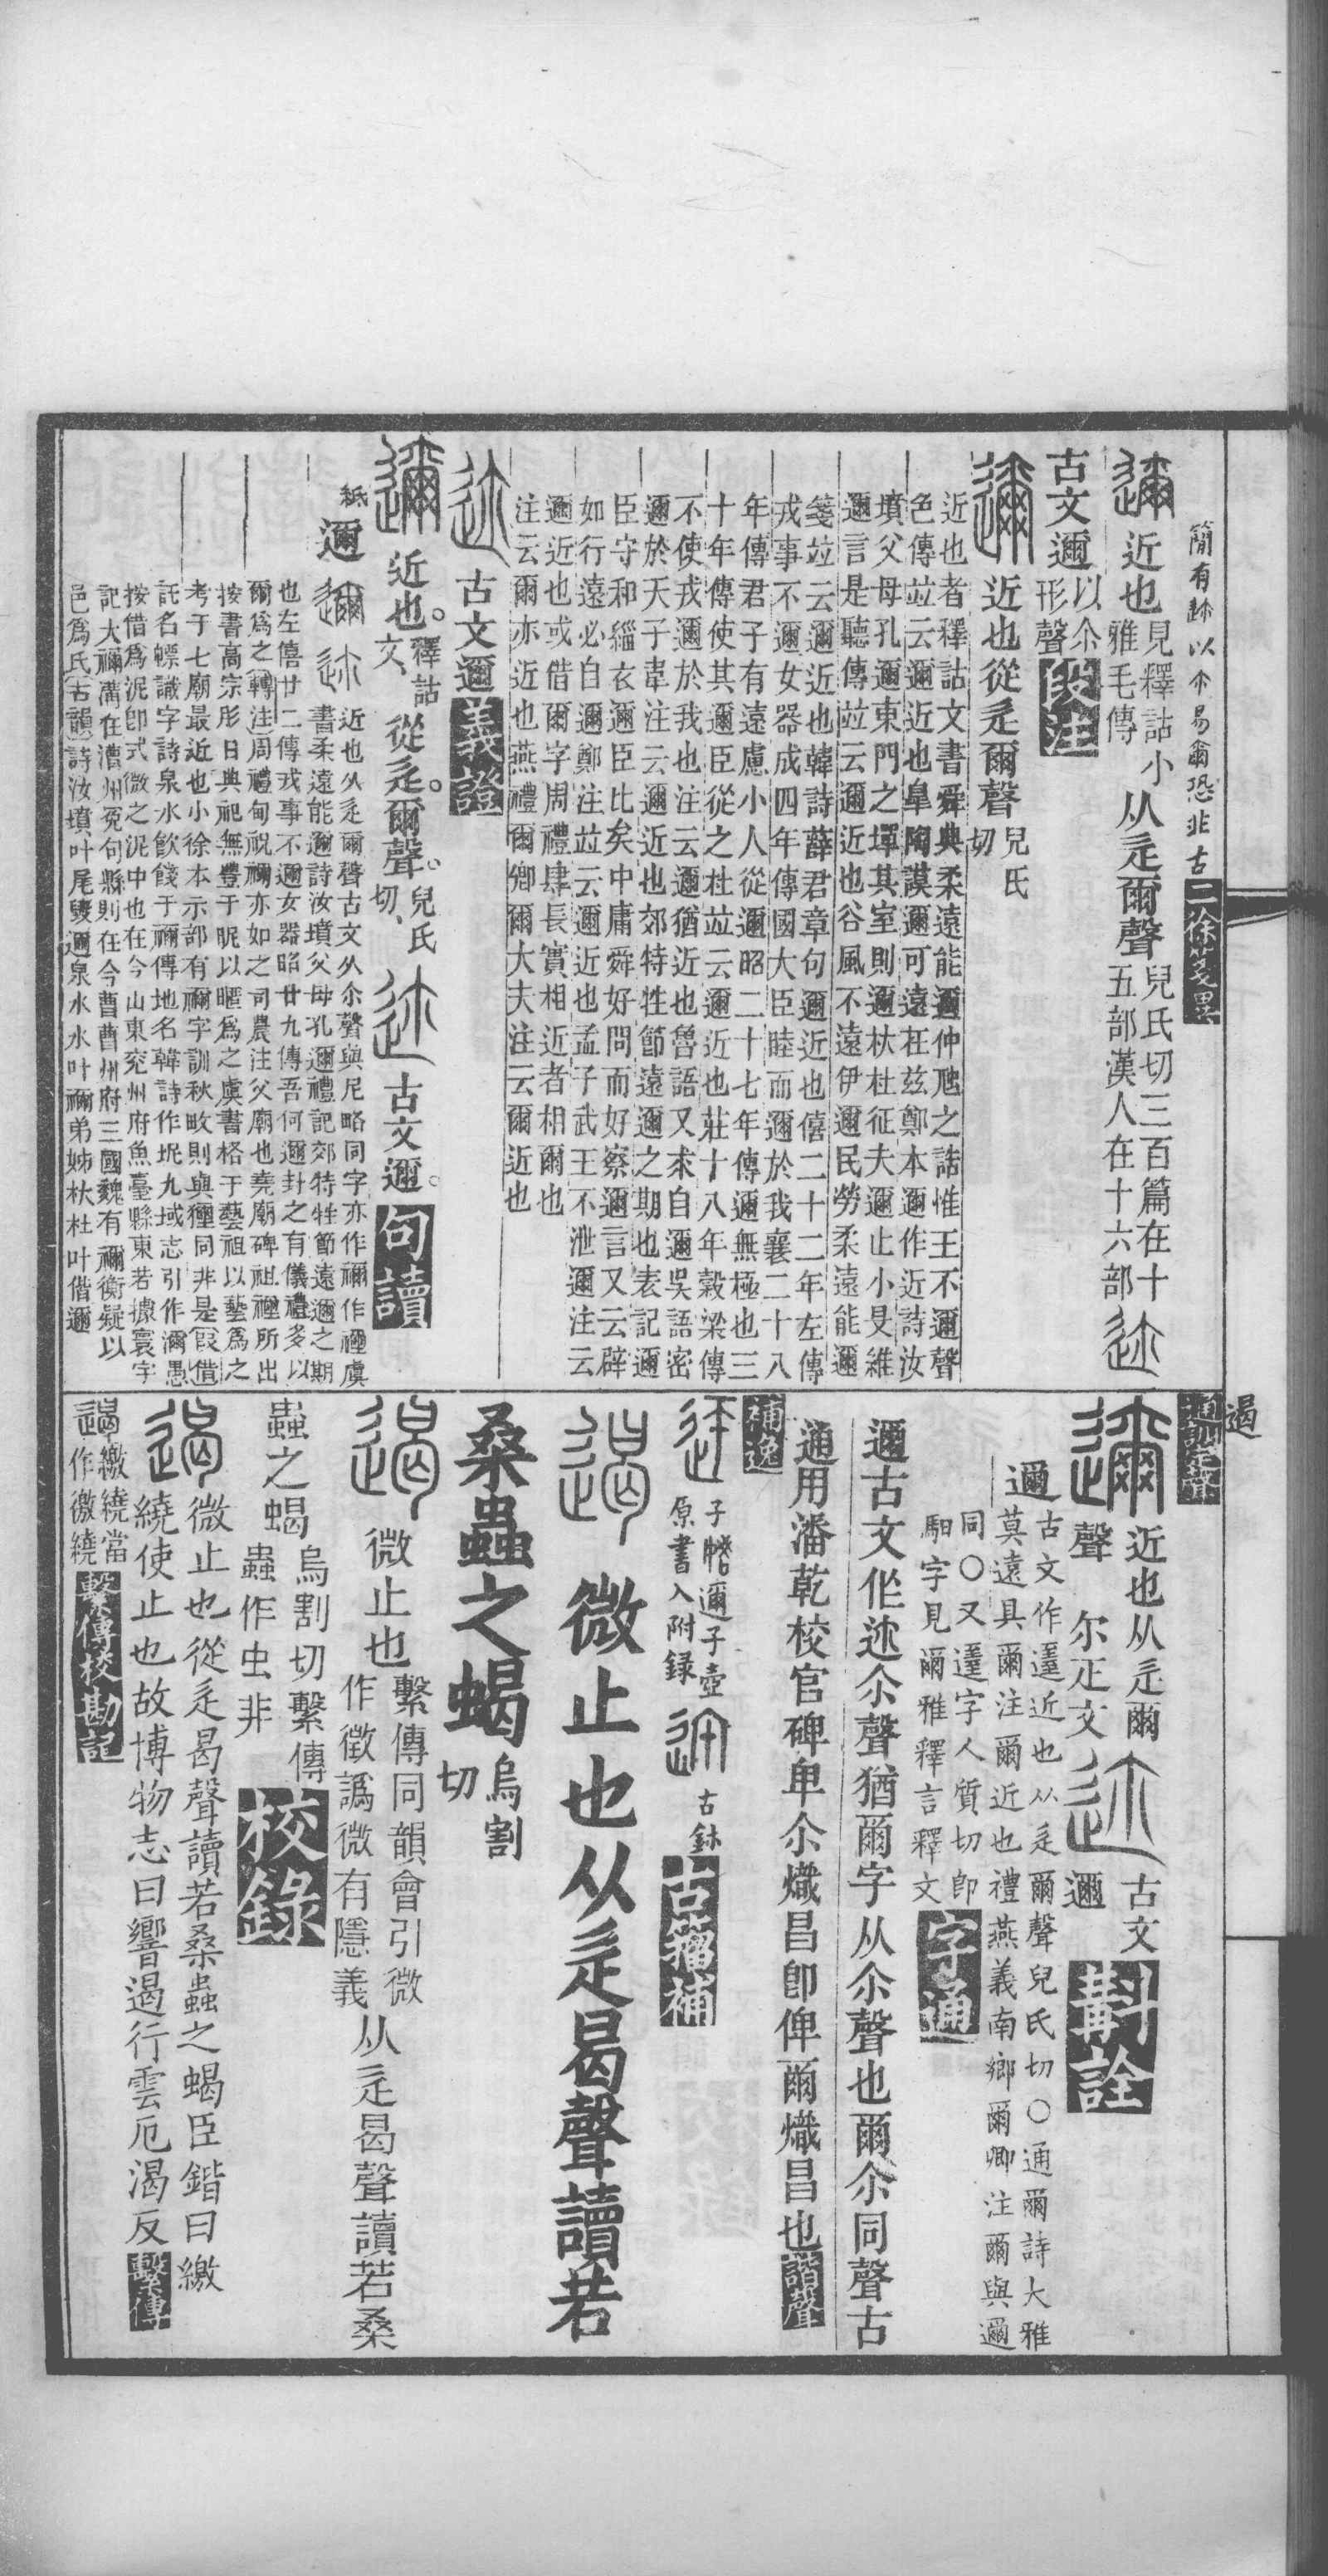 簡有迩以尒易爾恐非古二徐箋異
邇近也見釋詁小雅毛傳从辵爾聲兒氏切三百篇在十五部漢人在十六部迩
古文邇以尒形聲段注
邇近也從辵爾聲兒氏切
近也者釋詁文書舜典柔遠能邇仲虺之誥惟王不邇聲
色傳竝云邇近也皐陶謨邇可遠在茲鄭本邇作近詩汝
墳父母孔邇東門之墠其室則邇杕杜征夫邇止小旻維
邇言是聽傳竝云邇近也谷風不遠伊邇民勞柔遠能邇
箋竝云邇近也韓詩薛君章句邇近也僖二十二年左傳
戎事不邇女器成四年傳國大臣睦而邇於我襄二十八
年傳君子有遠慮小人從邇昭二十七年傳邇無極也三
十年傳使其邇臣從之杜竝云邇近也莊十八年穀梁傳
不使戎邇於我也注云邇猶近也魯語又求自邇吳語密
邇於天子韋注云邇近也郊特牲節遠邇之期也表記邇
臣守和緇衣邇臣比矣中庸舜好問而好察邇言又云辟
如行遠必自邇鄭注竝云邇近也孟子武王不泄邇注云
邇近也或借爾字周禮肆長實相近者相爾也
注云爾亦近也燕禮爾卿爾大夫注云爾近也
迩古文邇義證
邇近也。釋詁文、從辵。爾聲。兒氏切、迩古文邇。句讀
紙邇邇迩近也从辵爾聲古文从尒聲與尼略同字亦作禰作禋虞
書柔遠能邇詩汝墳父母孔邇禮記郊特牲節遠邇之期
也左僖廿二傳戎事不邇女器昭廿九傳吾何邇封之有儀禮多以
爾爲之轉注周禮甸祝禰亦如之司農注父廟也堯廟碑祖禋所出
按書高宗肜日典祀無豐于昵以暱爲之虞書格于藝祖以藝爲之
考于七廟最近也小徐本示部有禰字訓秋畋則與獮同非是叚借
託名幖識字詩泉水飲餞于禰傳地名韓詩作坭九域志引作濔愚
按借爲泥卽式微之泥中也在今山東兗州府魚臺縣東若據寰宇
記大禰溝在漕州冤句縣則在今曹曹州府三國魏有禰衡疑以
邑爲氏古韻詩汝墳叶尾燬邇泉水水叶禰弟姊杕杜叶偕邇
遏
通訓定聲
邇近也从辵爾聲尔正文迩古文邇斠詮
邇古文作邇近也从辵爾聲兒氏切○通爾詩大雅
莫遠具爾注爾近也禮燕義南鄉爾卿注爾與邇
同○又邇字人質切卽
馹字見爾雅釋言釋文字通
邇古文作迩尒聲猶爾字从尒聲也爾尒同聲古
通用潘乾校官碑卑尒熾昌卽俾爾熾昌也諧聲
補逸
子邇子壺原書入附録古鉥古籀補
遏微止也从辵曷聲讀若
桑蟲之蝎烏割切
遏微止也繫傳同韻會引微作徵譌微有隱義从辵曷聲讀若桑
蟲之蝎烏割切繫傳蟲作虫非校錄
遏微止也從辵曷聲讀若桑蟲之蝎臣鍇曰繳
繞使止也故博物志曰響遏行雲厄渴反繫傳
遏繳繞當作徼繞繫傳校勘記